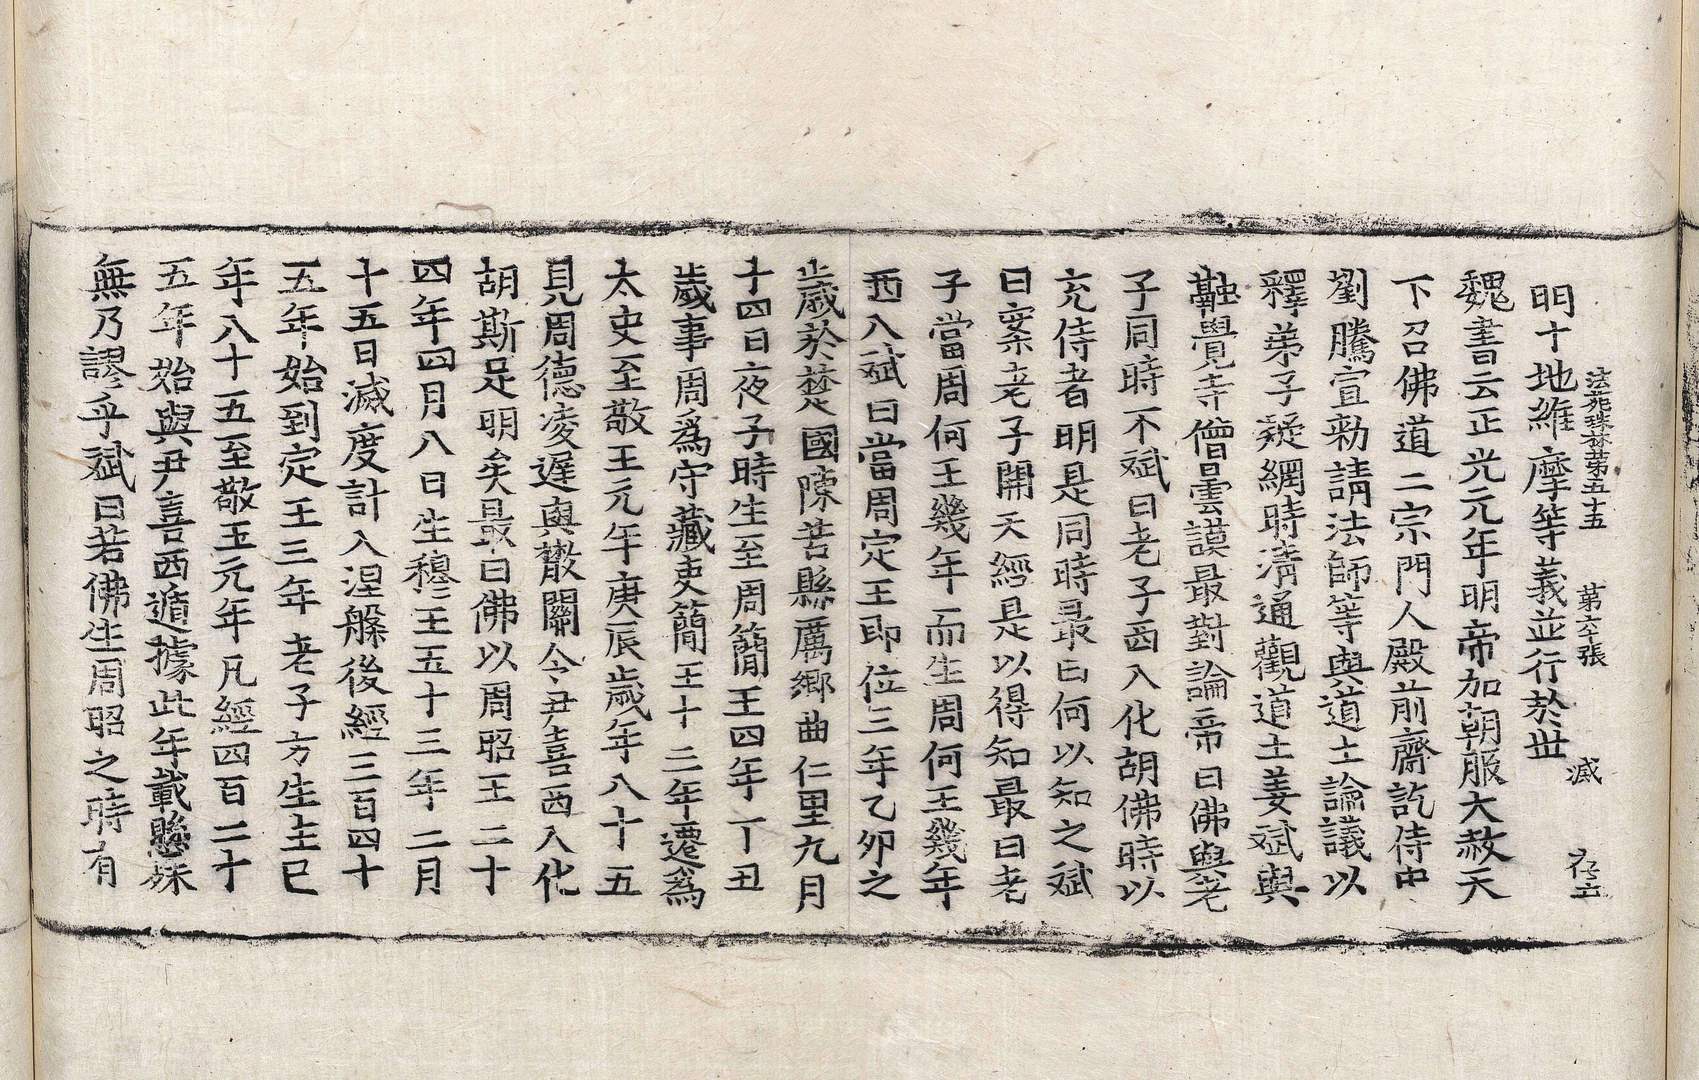 法苑珠林第五十五 第六張 滅 存立
明十地維摩等義並行於世
魏書云正光元年明帝加朝服大赦天
下召佛道二宗門人殿前齋訖侍中
劉騰宣勑請法師等與道士論議以
釋弟子疑網時清通觀道士姜斌與
融覺寺僧曇謨最對論帝曰佛與老
子同時不斌曰老子西入化胡佛時以
充侍者明是同時最曰何以知之斌
曰案老子開天經是以得知最曰老
子當周何王幾年而生周何王幾年
西入斌曰當周定王即位三年乙卯之
歲於楚國陳苦縣厲鄉曲仁里九月
十四日夜子時生至周簡王四年丁丑
歲事周爲守藏吏簡王十三年遷爲
太史至敬王元年庚辰歲年八十五
見周德凌遲與散關令尹喜西入化
胡斯足明矣最曰佛以周昭王二十
四年四月八日生穆王五十三年二月
十五日滅度計入涅槃後經三百四十
五年始到定王三年老子方生生已
年八十五至敬王元年凡經四百二十
五年始與尹喜西遁據此年載懸殊
無乃謬乎斌曰若佛生周昭之時有